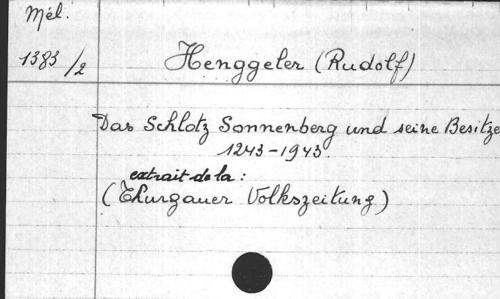 Mél.
1383/2
Henggeler (Rudolf)
Das Schlotz Sonnenberg und seine Besitze
1243-1943.
extrait de la :
(Thurgauer Volkszeitung)